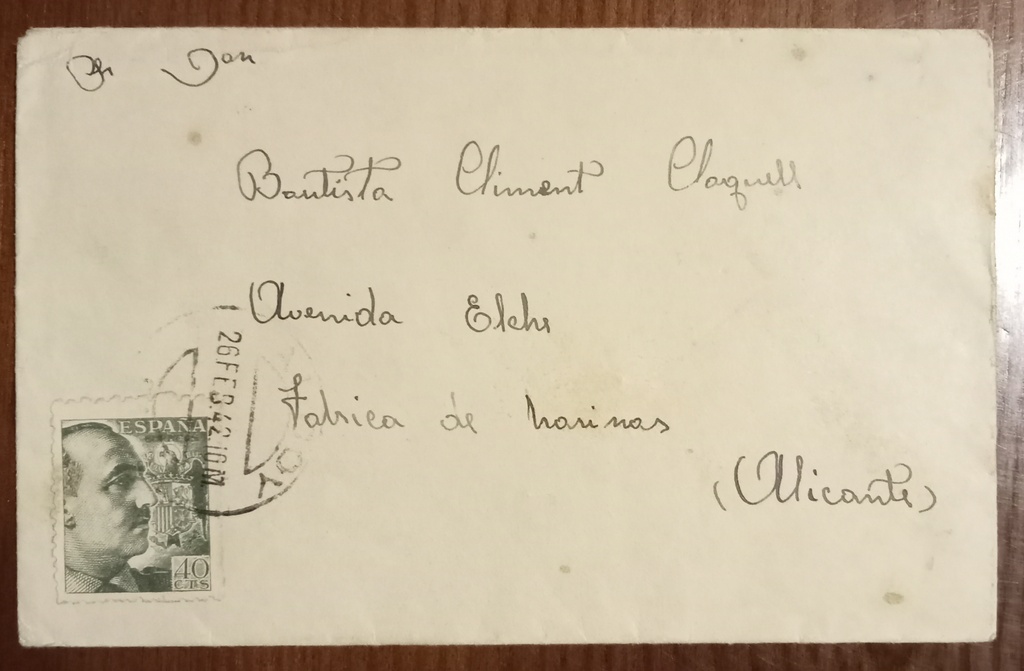 Sr Don
Bautista Climent Claquell
Avenida Elche
Fabrica de harinas
(Alicante)
26 FEB 42 10M
ESPAÑA
40
CTS